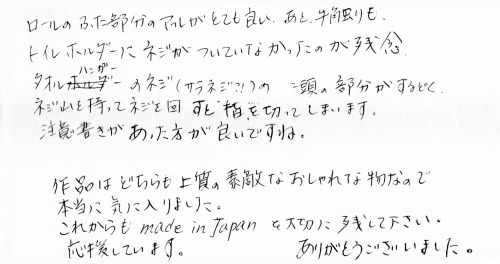 ロールのふた部分のアールがとても良い。あと、手触りも。
トイレホルダーにネジがついていなかったのが残念
タオルハンガーのネジ(サラネジ?!)の 頭の部分がするどく、
ネジ山を持ってネジを回すと指を切ってしまいます。
注意書きがあった方が良いですね。
作品はどちらも上質の素敵なおしゃれな物なので
本当に気に入りました。
これからも made in Japan を大切に残して下さい。
応援しています。 ありがとうございました。